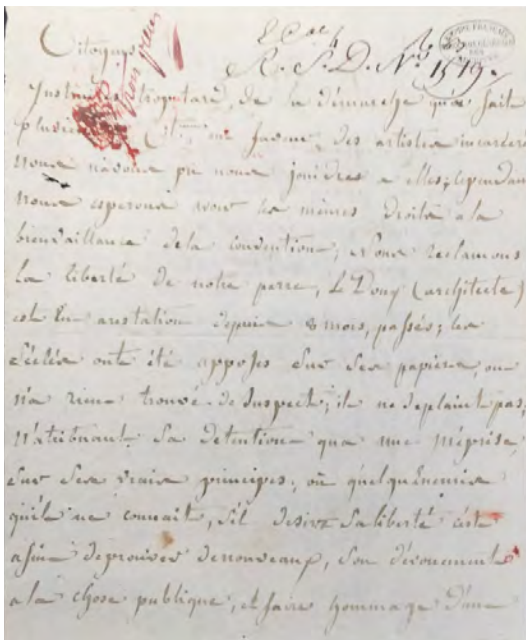 Citoyens
R. S. D. N° 1519.
Instruites trop tard, de la démarche qu'a fait
plusieurs Cit. en faveur, des artistes incarcérés
nous n'avons pu nous joindres a elles; cependant
nous esperons avoir les mêmes droits a la
bienvaillance de la convention, Nous reclamons
La liberté de notre perre, Le Doux (architecte)
est En arestation depuis 8 mois, passés; les
scéllés ont été apposés sur ses papiers, on
n'a rien trouvé de suspect; il ne se plaint pas,
N'atribuant sa detention qua une méprise,
sur ses vrais principes, où quelqu'Enemis
qu'il ne connait, s'il desire sa liberté c'est
afin de prouver denouveaux, son dévouement
a la chose publique, et faire hommage d'une